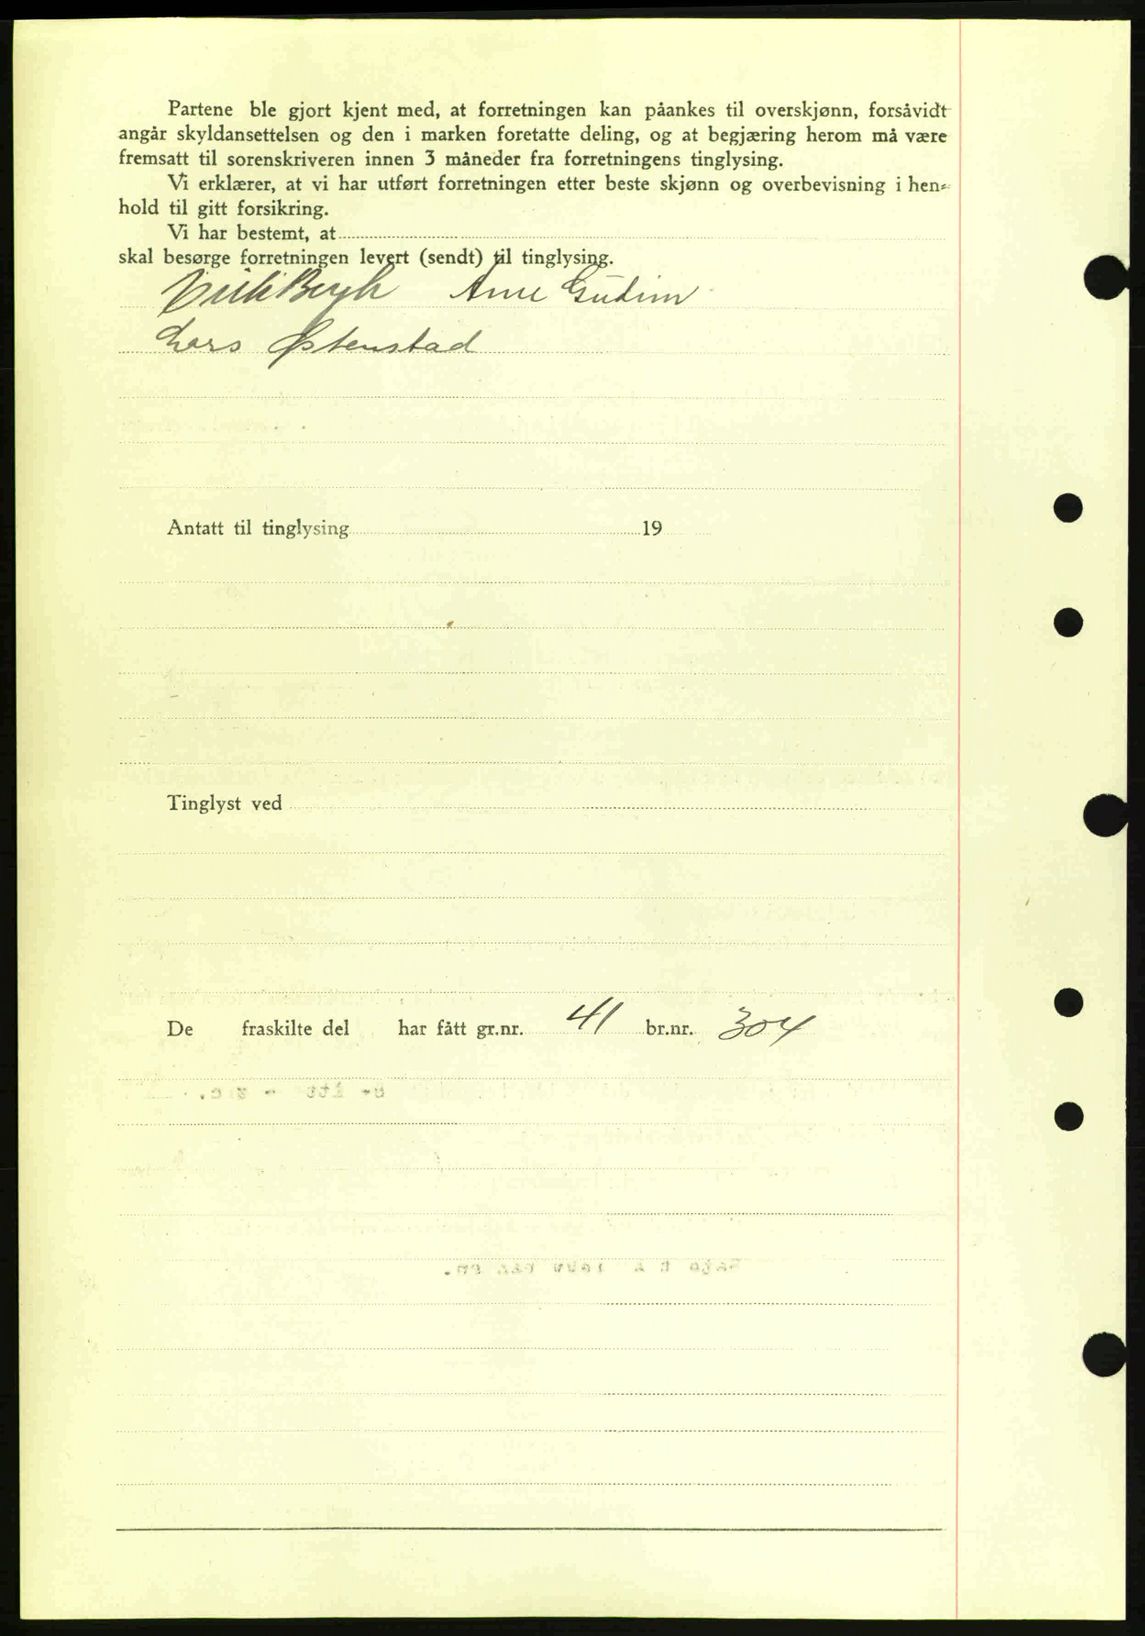 Partene ble gjort kjent med, at forretningen kan påankes til overskjønn, forsåvidt
angår skyldansettelsen og den i marken foretatte deling, og at begjæring herom må være
fremsatt til sorenskriveren innen 3 måneder fra forretningens tinglysing.
Vi erklærer, at vi har utført forretningen etter beste skjønn og overbevisning i hen-
hold til gitt forsikring.
Vi har bestemt, at
skal besørge forretningen levert (sendt) til tinglysing.
Bergh Arne Gudim
Lars Østenstad
Antatt til tinglysing 19
Tinglyst ved
De fraskilte del har fått gr.nr. 41 br.nr. 304